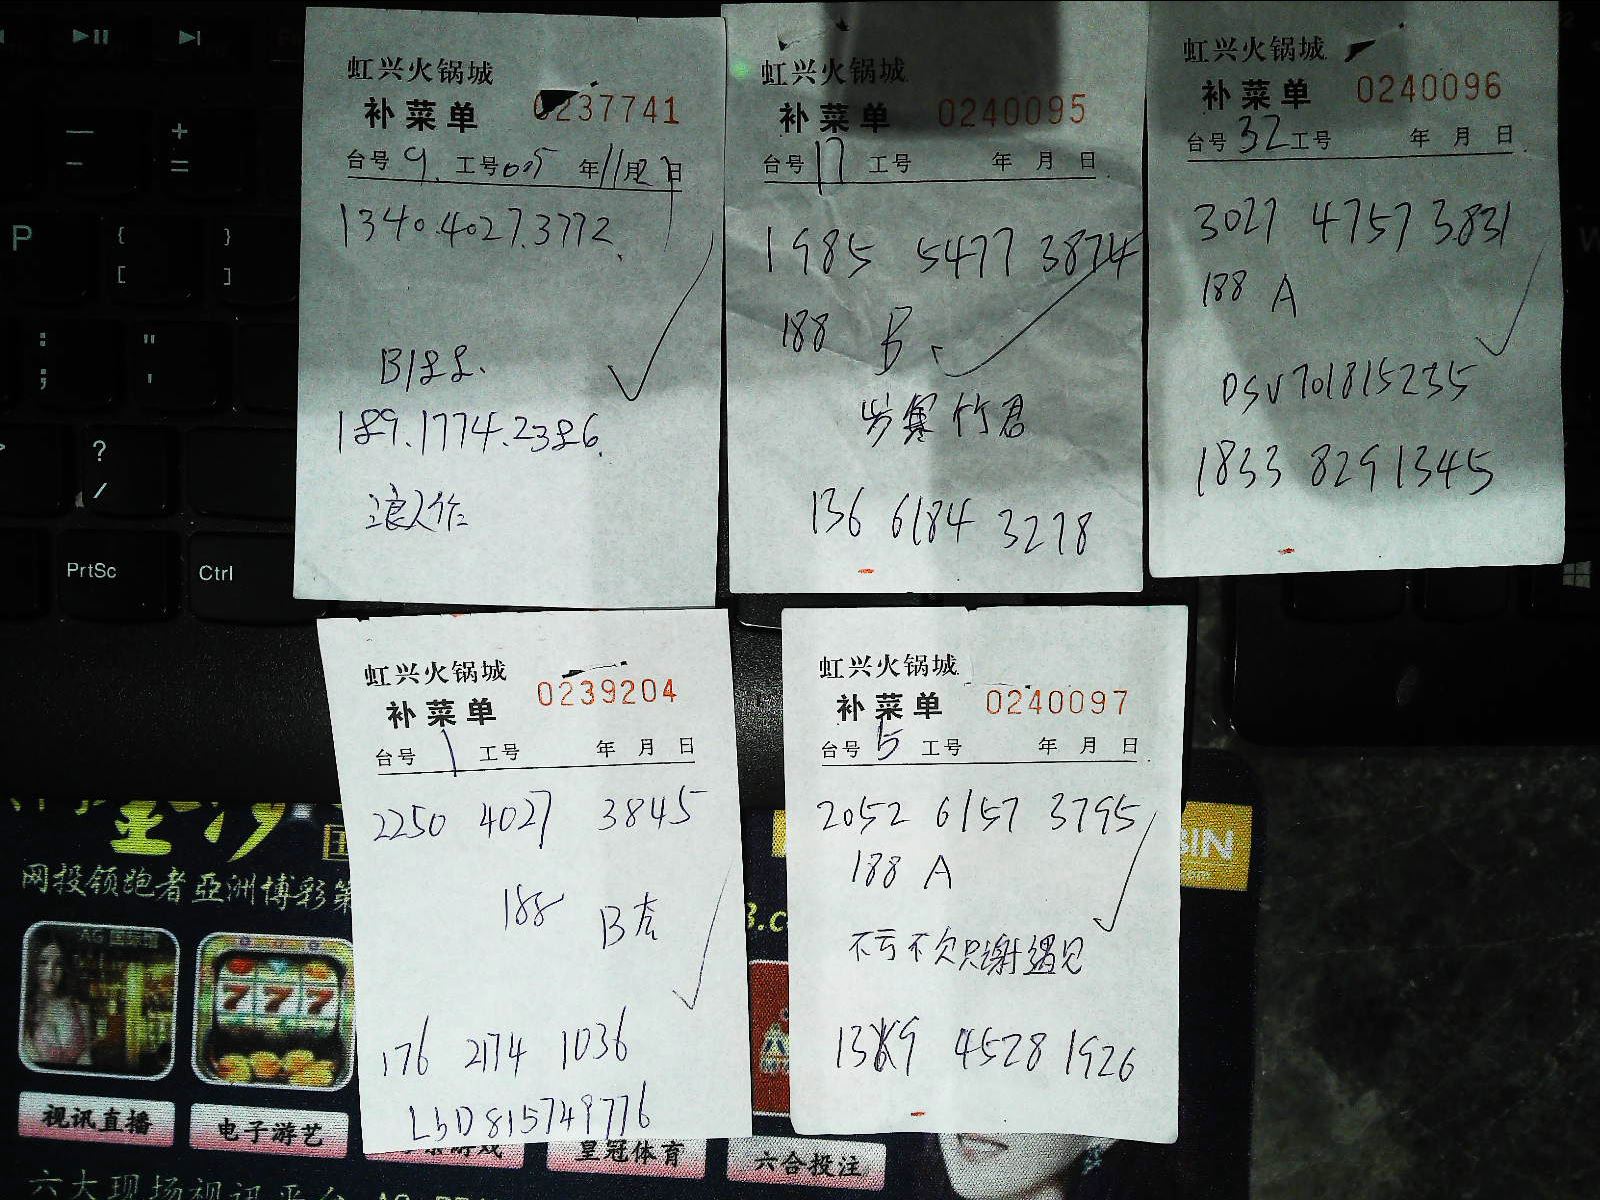 虹兴火锅城
补菜单 0237741
台号 9. 工号 005 年 11 月 2 日
1340.4027.3772.
B188.
189.1774.2386.
浪人作
虹兴火锅城
补菜单 0240095
台号 17 工号 年 月 日
1985 5477 3874
188 B
岁寒竹君
136 6184 3278
虹兴火锅城
补菜单 0240096
台号 32 工号 年 月 日
3027 4757 3831
188 A
DSV701815235
1833 8291345
虹兴火锅城
补菜单 0239204
台号 1 工号 年 月 日
2250 4027 3845
188 B
176 2174 1036
LSD815749776
虹兴火锅城
补菜单 0240097
台号 5 工号 年 月 日
2052 6157 3795
188 A
不亏不欠只谢遇见
4528 1926
P
{
[
}
]
+
=
:
;
"
'
?
/
PrtSc
Ctrl
网投领跑者亞洲博彩第
BIN
777
视讯直播
电子游艺
皇冠体育
六合投注
六大现场视讯平台